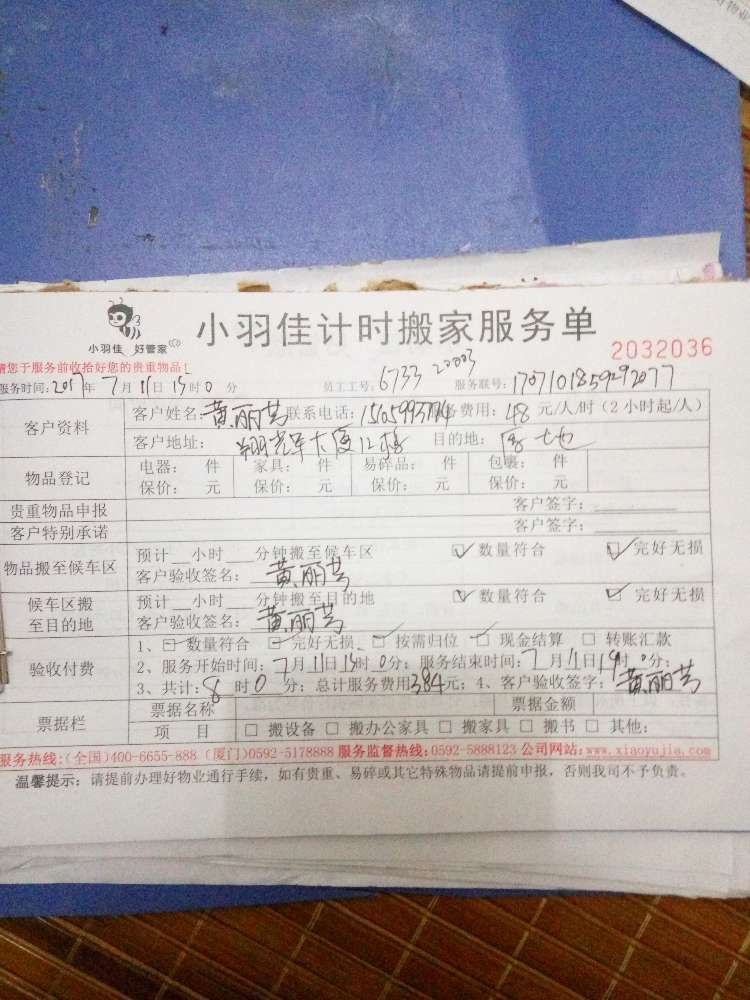 小羽佳 好管家
小羽佳计时搬家服务单
2032036
请您于服务前收拾好您的贵重物品!
服务时间:2017年7月11日15时0分 员工工号:6733 20003 服务联号:1707101859292077
客户资料
客户姓名:黄丽芸 联系电话: 务费用:48元/人/时(2小时起/人)
客户地址: 大厦12楼 目的地:
物品登记
电器: 件 家具: 件 易碎品: 件 包裹: 件
保价: 元 保价: 元 保价: 元 保价: 元
贵重物品申报 客户签字:
客户特别承诺 客户签字:
物品搬至候车区
预计__小时___分钟搬至候车区 ☑数量符合 ☑完好无损
客户验收签名:黄丽芸
候车区搬至目的地
预计__小时___分钟搬至目的地 ☑数量符合 ☑完好无损
客户验收签名:黄丽芸
验收付费
1、☑数量符合 ☑完好无损 ☑按需归位 ☑现金结算 □转账汇款
2、服务开始时间:7月11日15时0分;服务结束时间:7月11日19时0分;
3、共计:8时0分;总计服务费用384元;4、客户验收签字:黄丽芸
票据栏
票据名称 票据金额
项目 □搬设备 □搬办公家具 □搬家具 □搬书 □其他:
服务热线:(全国)400-6655-888 (厦门)0592-5178888 服务监督热线:0592-5888123 公司网站:www.xiaoyujia.com
温馨提示:请提前办理好物业通行手续,如有贵重、易碎或其它特殊物品请提前申报,否则我司不予负责。